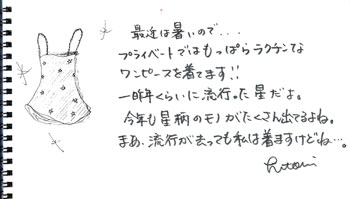 最近は暑いので...
プライベートではもっぱらラクチンな
ワンピースを着てます!!
一昨年くらいに流行った星だよ。
今年も星柄のモノがたくさん出てるよね。
まぁ、流行が去っても私は着ますけどね…。